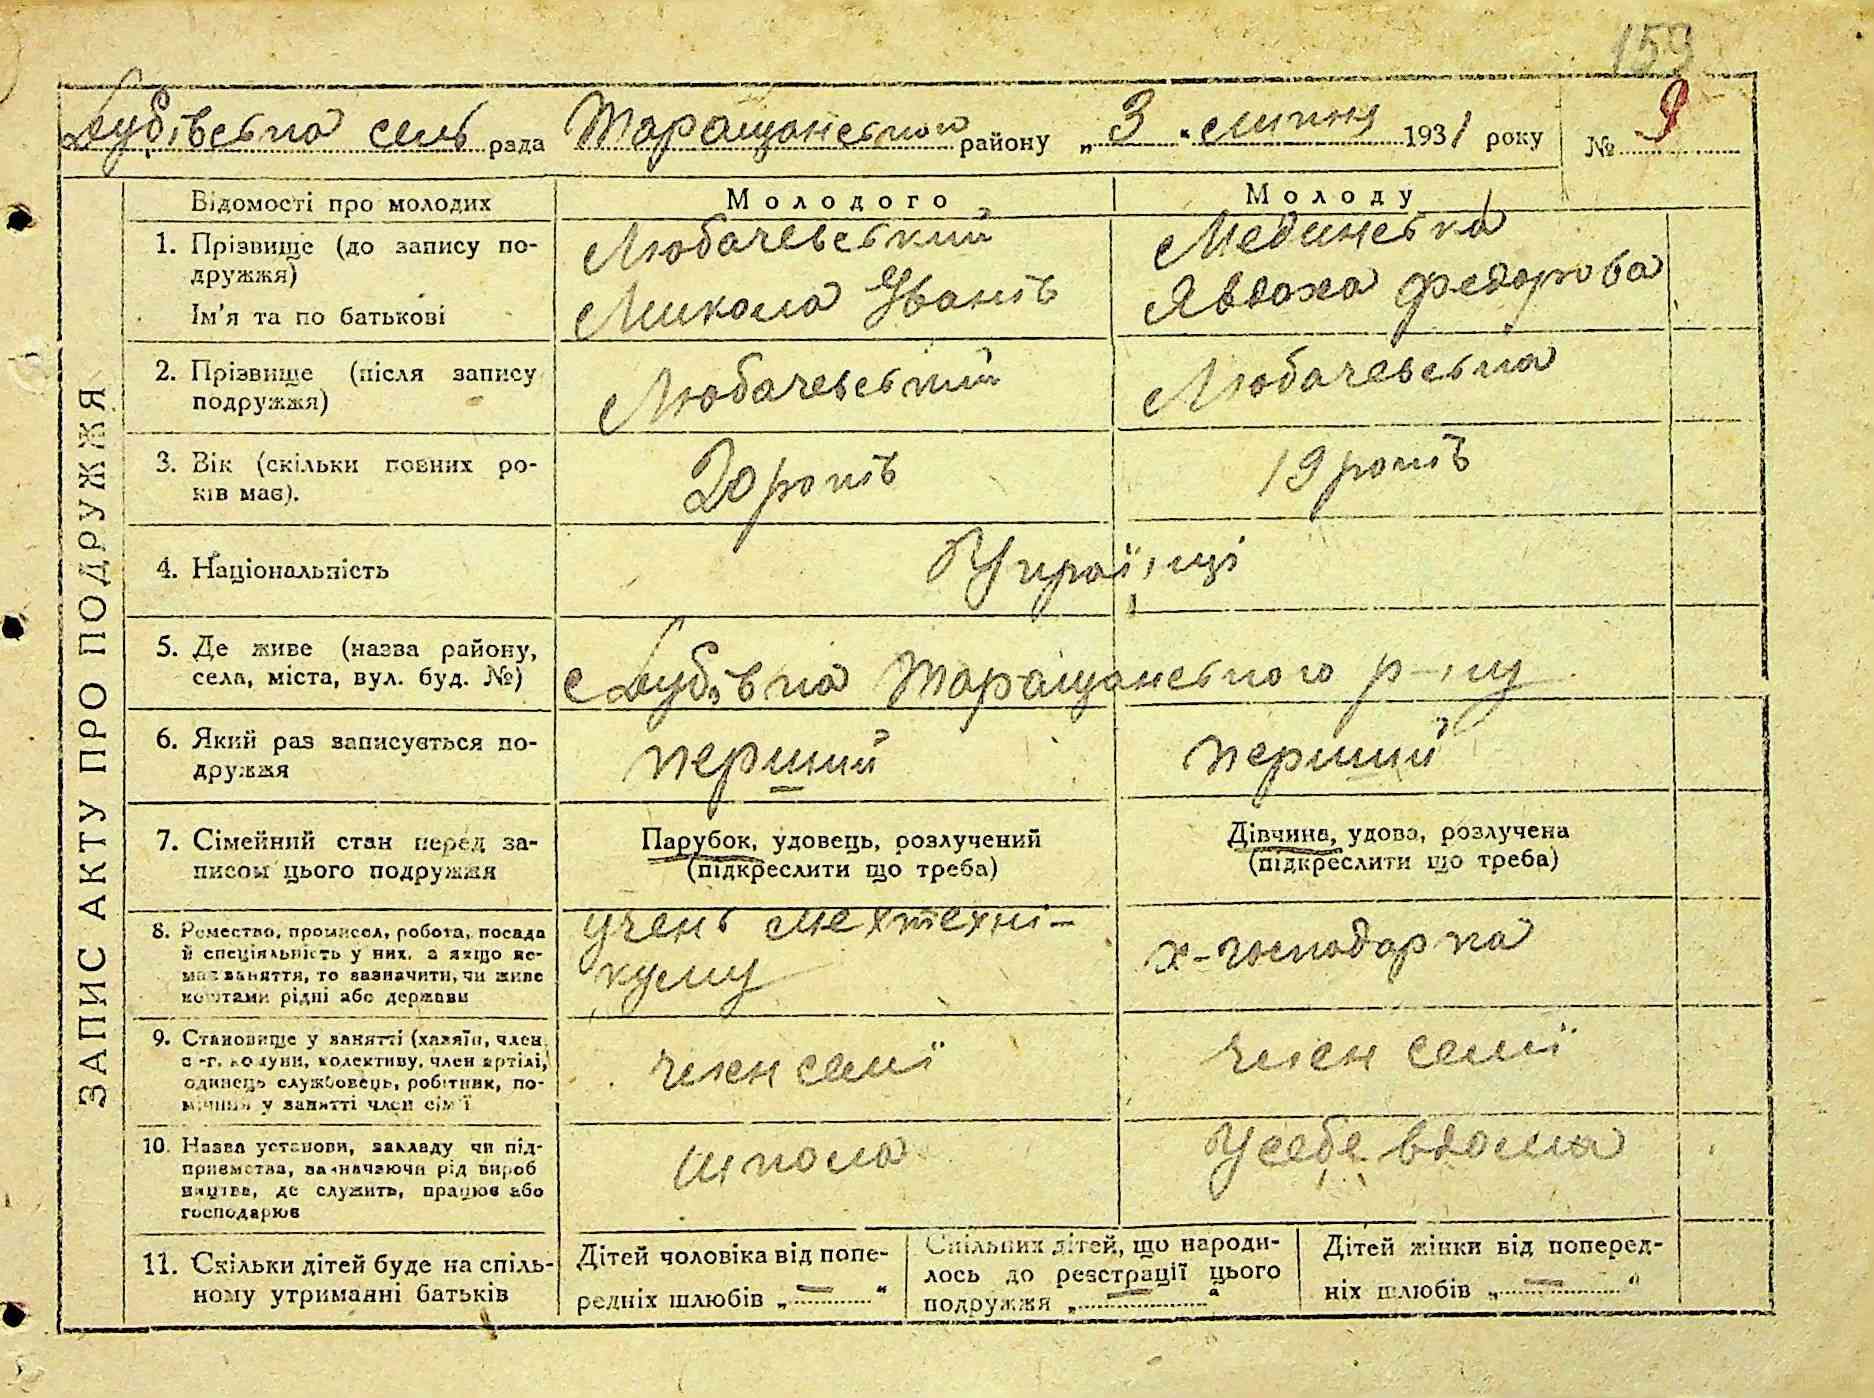 159
Дубівська сель рада Таращанського району „ 3 “ липня 1931 року № 9
ЗАПИС АКТУ ПРО ПОДРУЖЖЯ
Відомості про молодих Молодого Молоду
1. Прізвище (до запису по-
дружжя)
Любачевський Мединська
Ім'я та по батькові
Микола Іванів Явдоха Федорова
2. Прізвище (після запису
подружжя)
Любачевський Любачевська
3. Вік (скільки повних ро-
ків має).
20 років 19 років
4. Національність Украї,нці
5. Де живе (назва району,
села, міста, вул. буд. №)
с Дубівка Таращанського р-ну
6. Який раз записується по-
дружжя
перший перший
7. Сімейний стан перед за-
писом цього подружжя
Парубок, удовець, розлучений
(підкреслити що треба)
Дівчина, удова, розлучена
(підкреслити що треба)
8. Ремество, промисел, робота, посада
й спеціяльність у них, а якщо не-
має заняття, то зазначити, чи живе
коштами рідні або держави
учень мехтехні-
куму
х-господарка
9. Становище у занятті (хазяїн, член
с.-г. комуни, колективу, член артілі,
одинець службовець, робітник, по-
мічний у занятті член сім'ї
член семї член семї
10. Назва установи, закладу чи під-
приємства, зазначаючи рід вироб
ництва, де служить, працює або
господарює
школа У себе вдома
11. Скільки дітей буде на спіль-
ному утриманні батьків
Дітей чоловіка від попе-
редніх шлюбів „ — “
Спільних дітей, що народи-
лось до реєстрації цього
подружжя „ — “
Дітей жінки від поперед-
ніх шлюбів „ — “